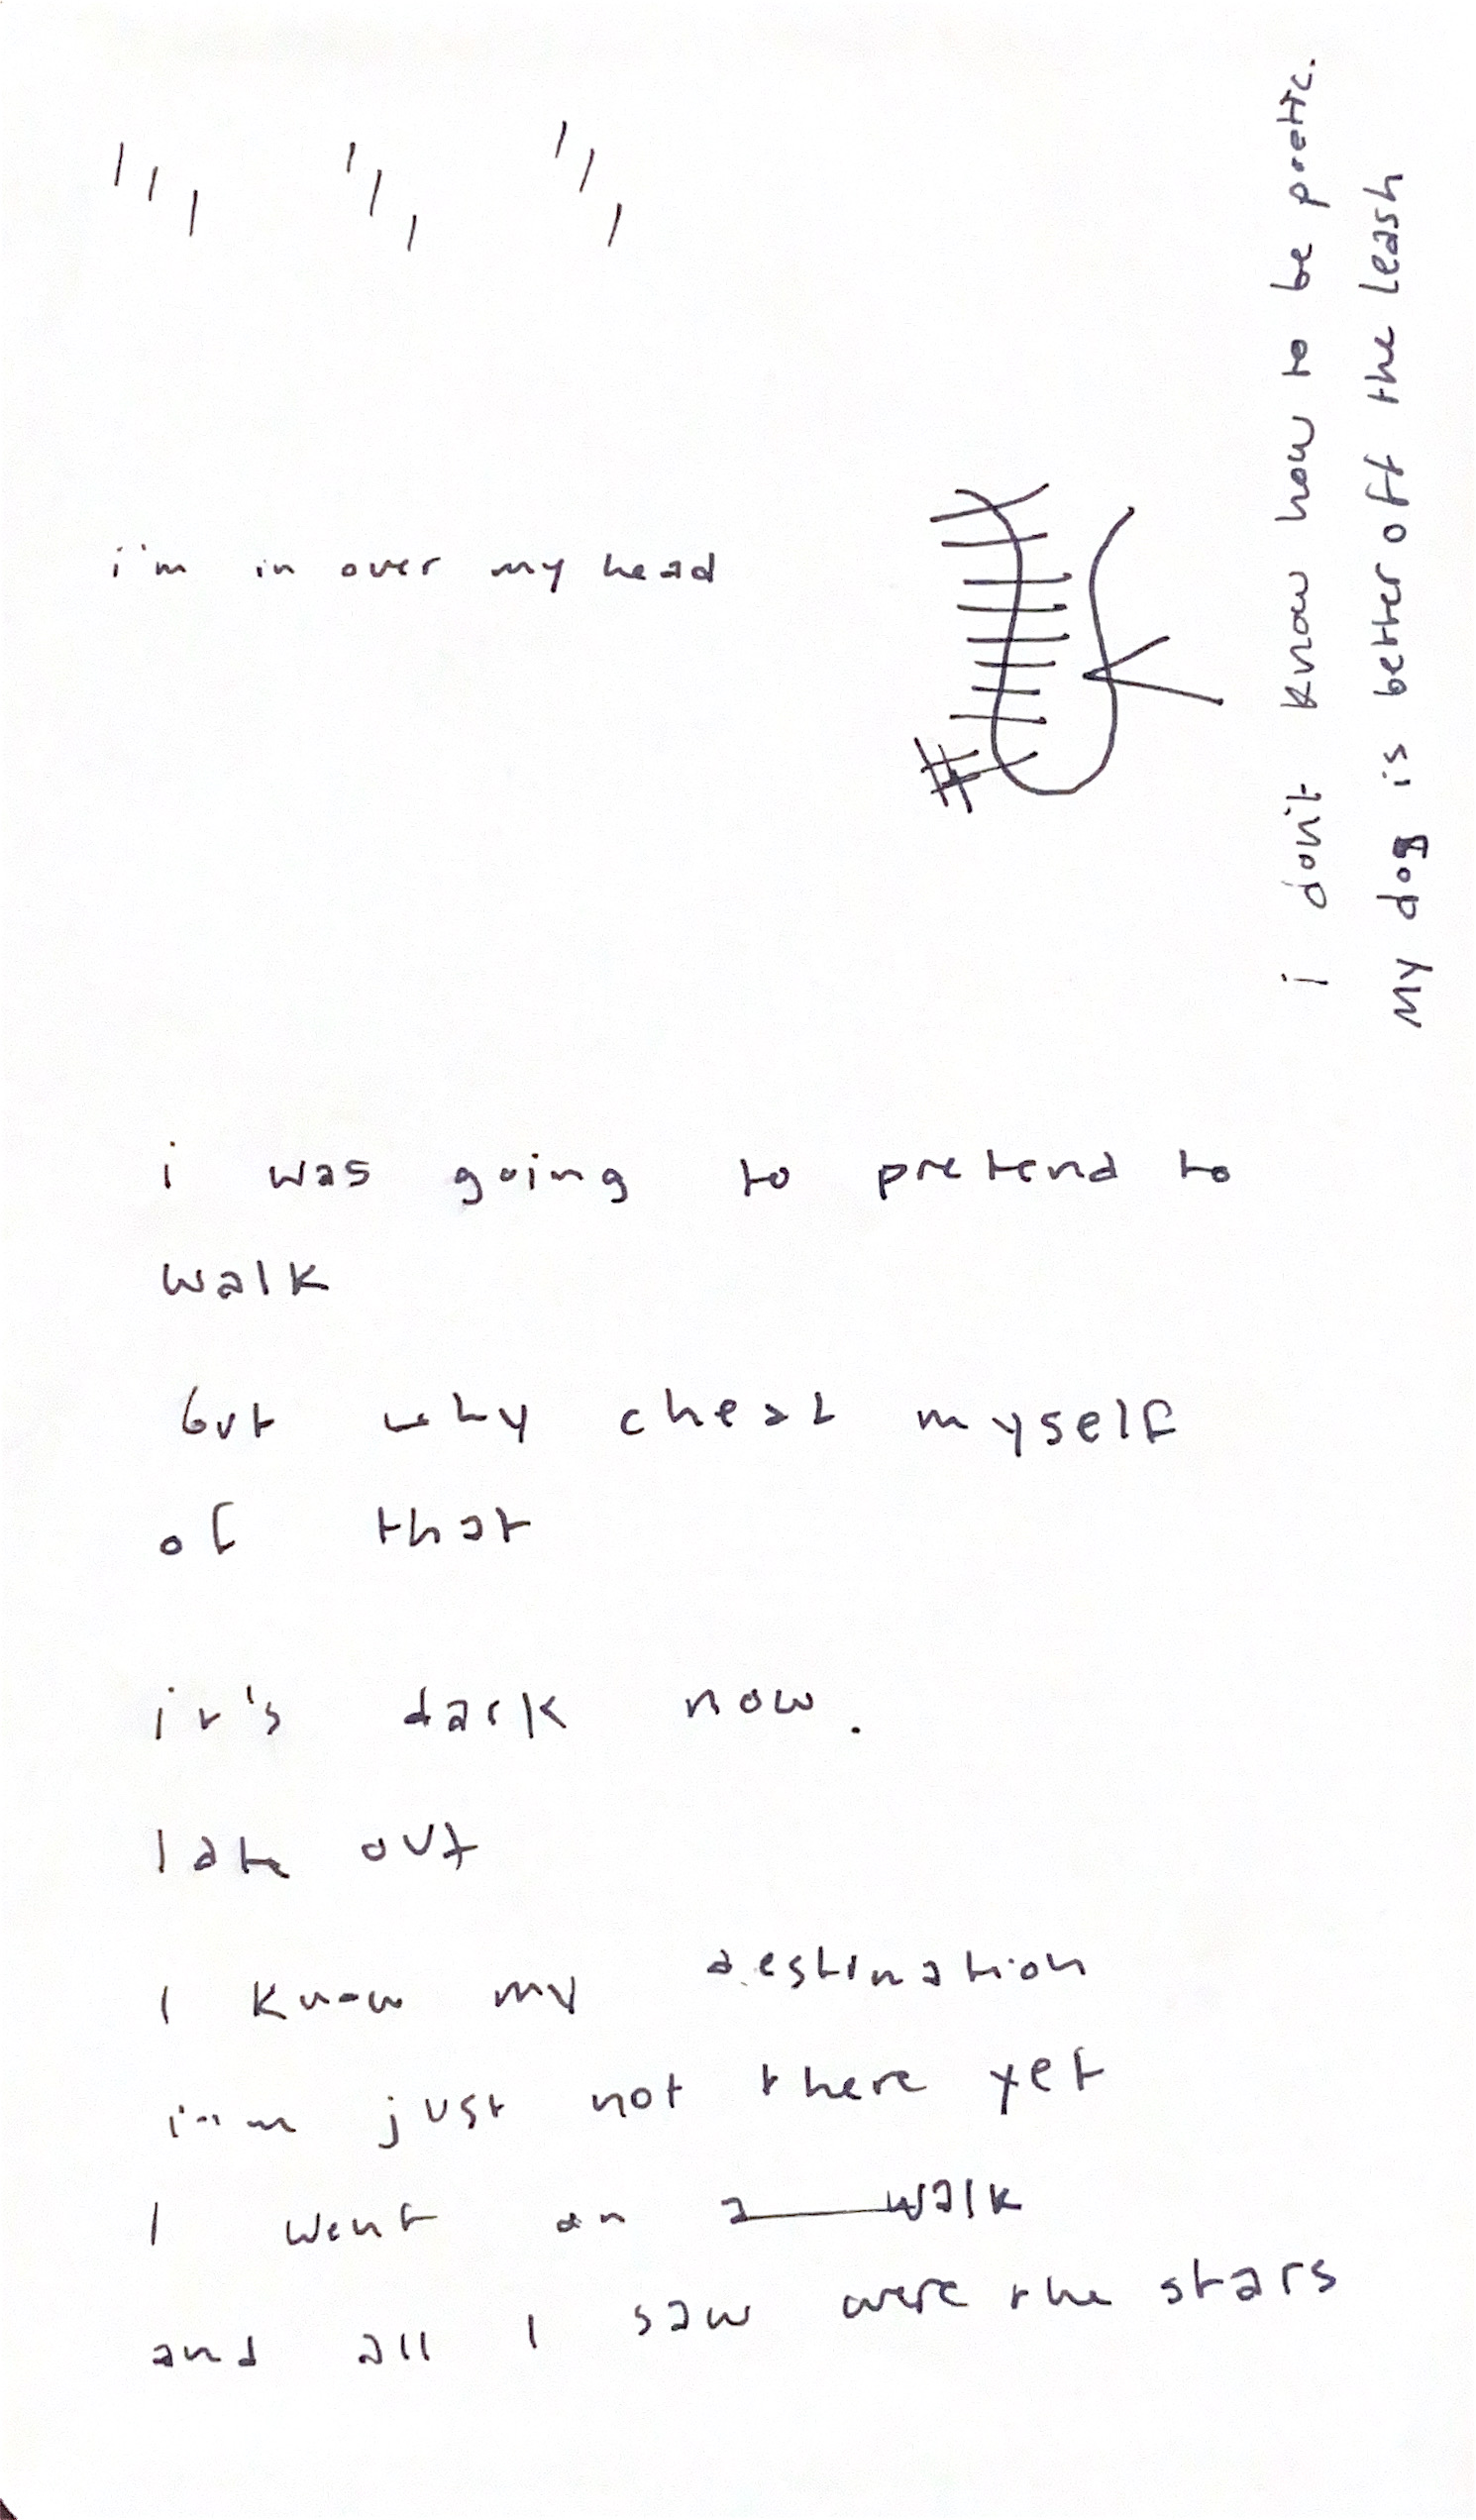 i'm in over my head
i don't know how to be poetic.
My dog is better off the leash
i was going to pretend to
walk
but why cheat myself
of that
it's dark now.
late out
I know my destination
i'm just not there yet
I went on a walk
and all I saw were the stars